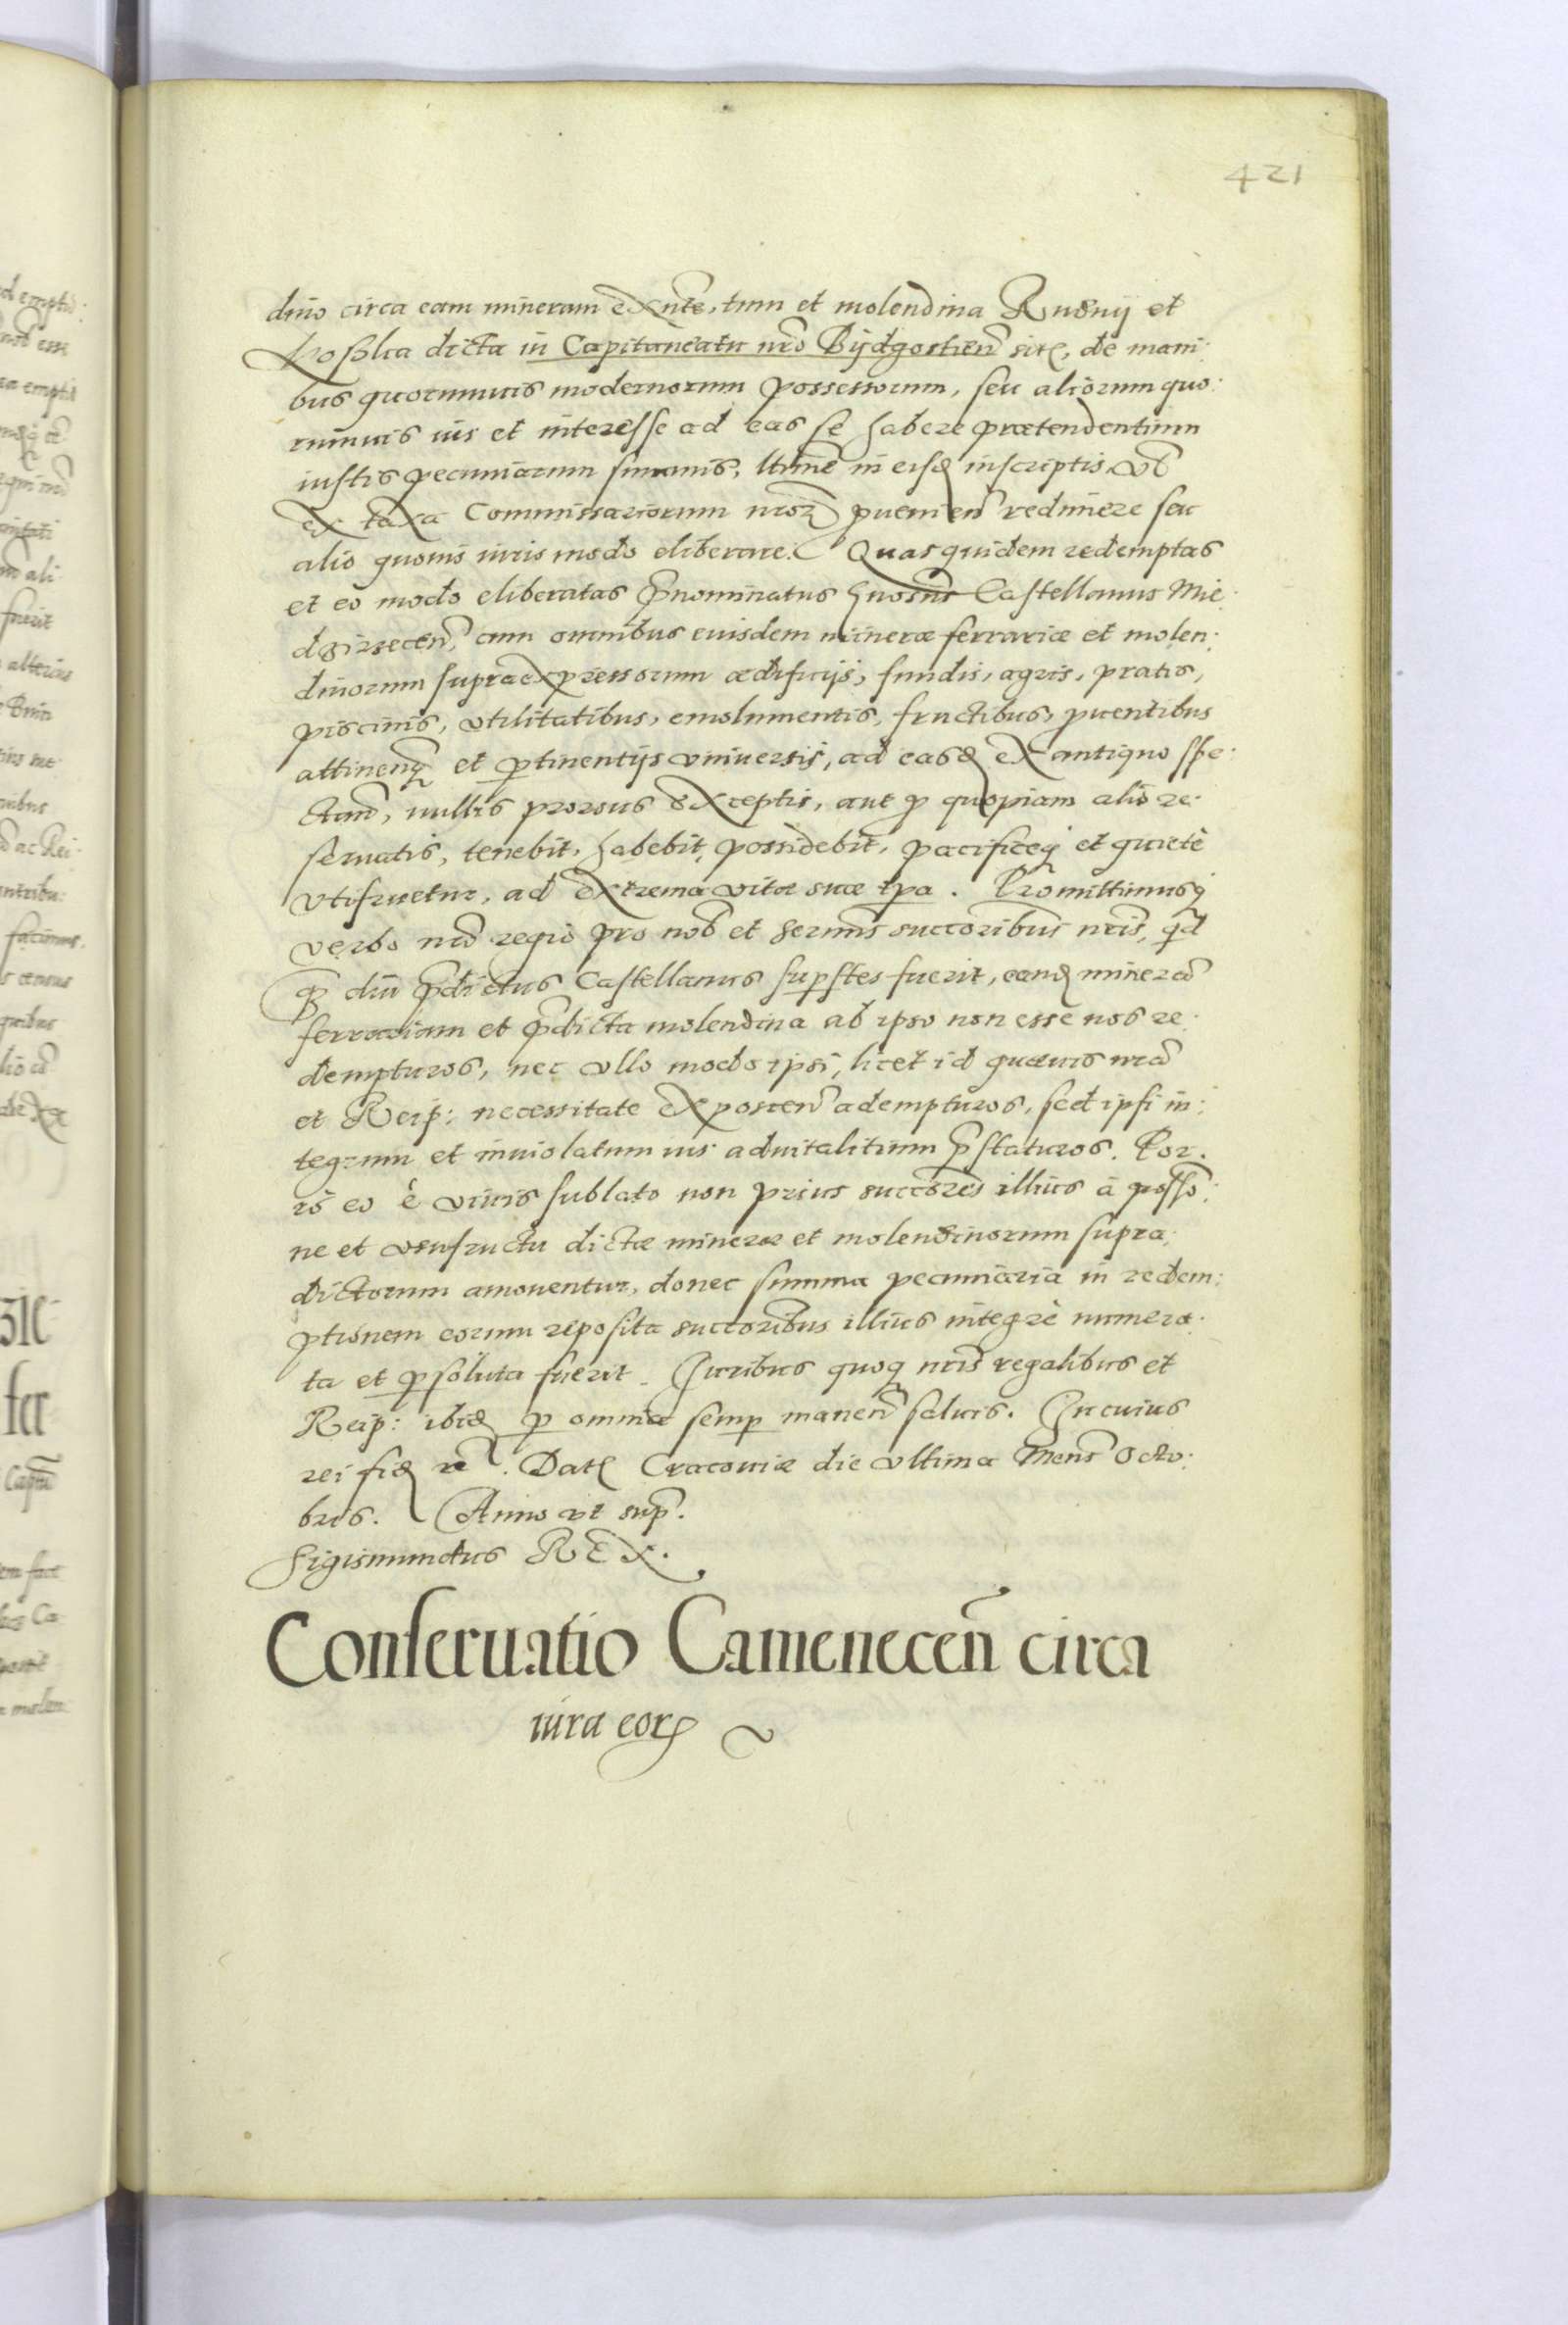 421
dino circa eam mineram exn̄te, tum et molendina Rudnij et
Kosolia dicta in Capitaneatu nr̄o Bijdgostien̄ sit̨, de mani:
bus quorumuis modernorum possessorum, seu aliorum quo:
rumuis ius et interesse ad eas se habere prætendentium
iustis pecuniarum summis, l̄time in eisd̨ inscriptis, vel
ex taxa Commissariorum nr̄or̨ ꝓuenien̄ redimere seu
alio quouis iuris modo eliberare. Quas quidem redemptas
et eo modo eliberatas p̄nominatus Gnosus Castellanus Mie:
dzirzecen̄, cum omnibus euisdem mineræ ferrariæ et molen:
dinorum supraexpressorum ædificijs, fundis, agris, pratis,
piscinis, vtilitatibus, emolumentis, fructibus, prouentibus
attinen̄q̨ et ꝑtinentijs vniuersis, ad easd̨ ex antiquo spe:
ctan̄, nullis prorsus exceptis, aut ꝑ quopiam alio re:
seruatis, tenebit, habebit, possidebit, pacificeq̨ et quietè
vtifruetur, ad extrema vitæ suæ tp̄a. Promittimusq̨
verbo nr̄o regio pro nob̄ et sermis̄ succōribus nr̄is, qd̄
q̄ diu p̄dictus Castellanus supstes fuerit, eand̨ minerā
ferrariam et p̄dicta molendina ab ipso non esse nos re:
dempturos, nec vllo modo ipsi, licet id quæuis nr̄a
et Reip: necessitate exposcen̄ adempturos, sed ipsi in:
tegrum et inuiolatum ius aduitalitium p̄staturos. Por:
rò eo è viuis sublato non prius succōres illius à possō:
ne et vsufructu dictæ mineræ et molendinorum supra:
dictorum amouentur, donec summa pecuniaria in redem:
ptionem eorum reposita succōribus illius integrè numera:
ta et ꝑsoluta fuerit. Iuribus quoq̨ nr̄is regalibus et
Reip: ibid̨ ꝑ omnia semp̱ manen̄ saluis. In cuius
rei fid̨ rē. Dat̨ Cracouiæ die vltima Mens̄ Octo:
bris. Anno vt sup̄.
Sigismundus REX.
Conseruatio Camenecen̄ circa
iura eor̨